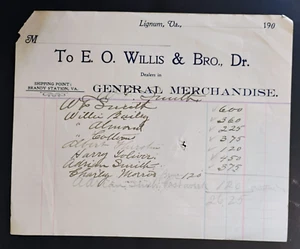 Lignum, Va., 190
M
To E. O. WILLIS & BRO., Dr.
Dealers in
SHIPPING POINT:
BRANDY STATION, VA.
GENERAL MERCHANDISE.
Smith
W F Smith $ 600
Willie Bailey " 360
" Almond " 225
" Collins " 375
Albert " 120
Harry Toliver " 450
Adrian Smith " 375
Charley Morris 120
2625